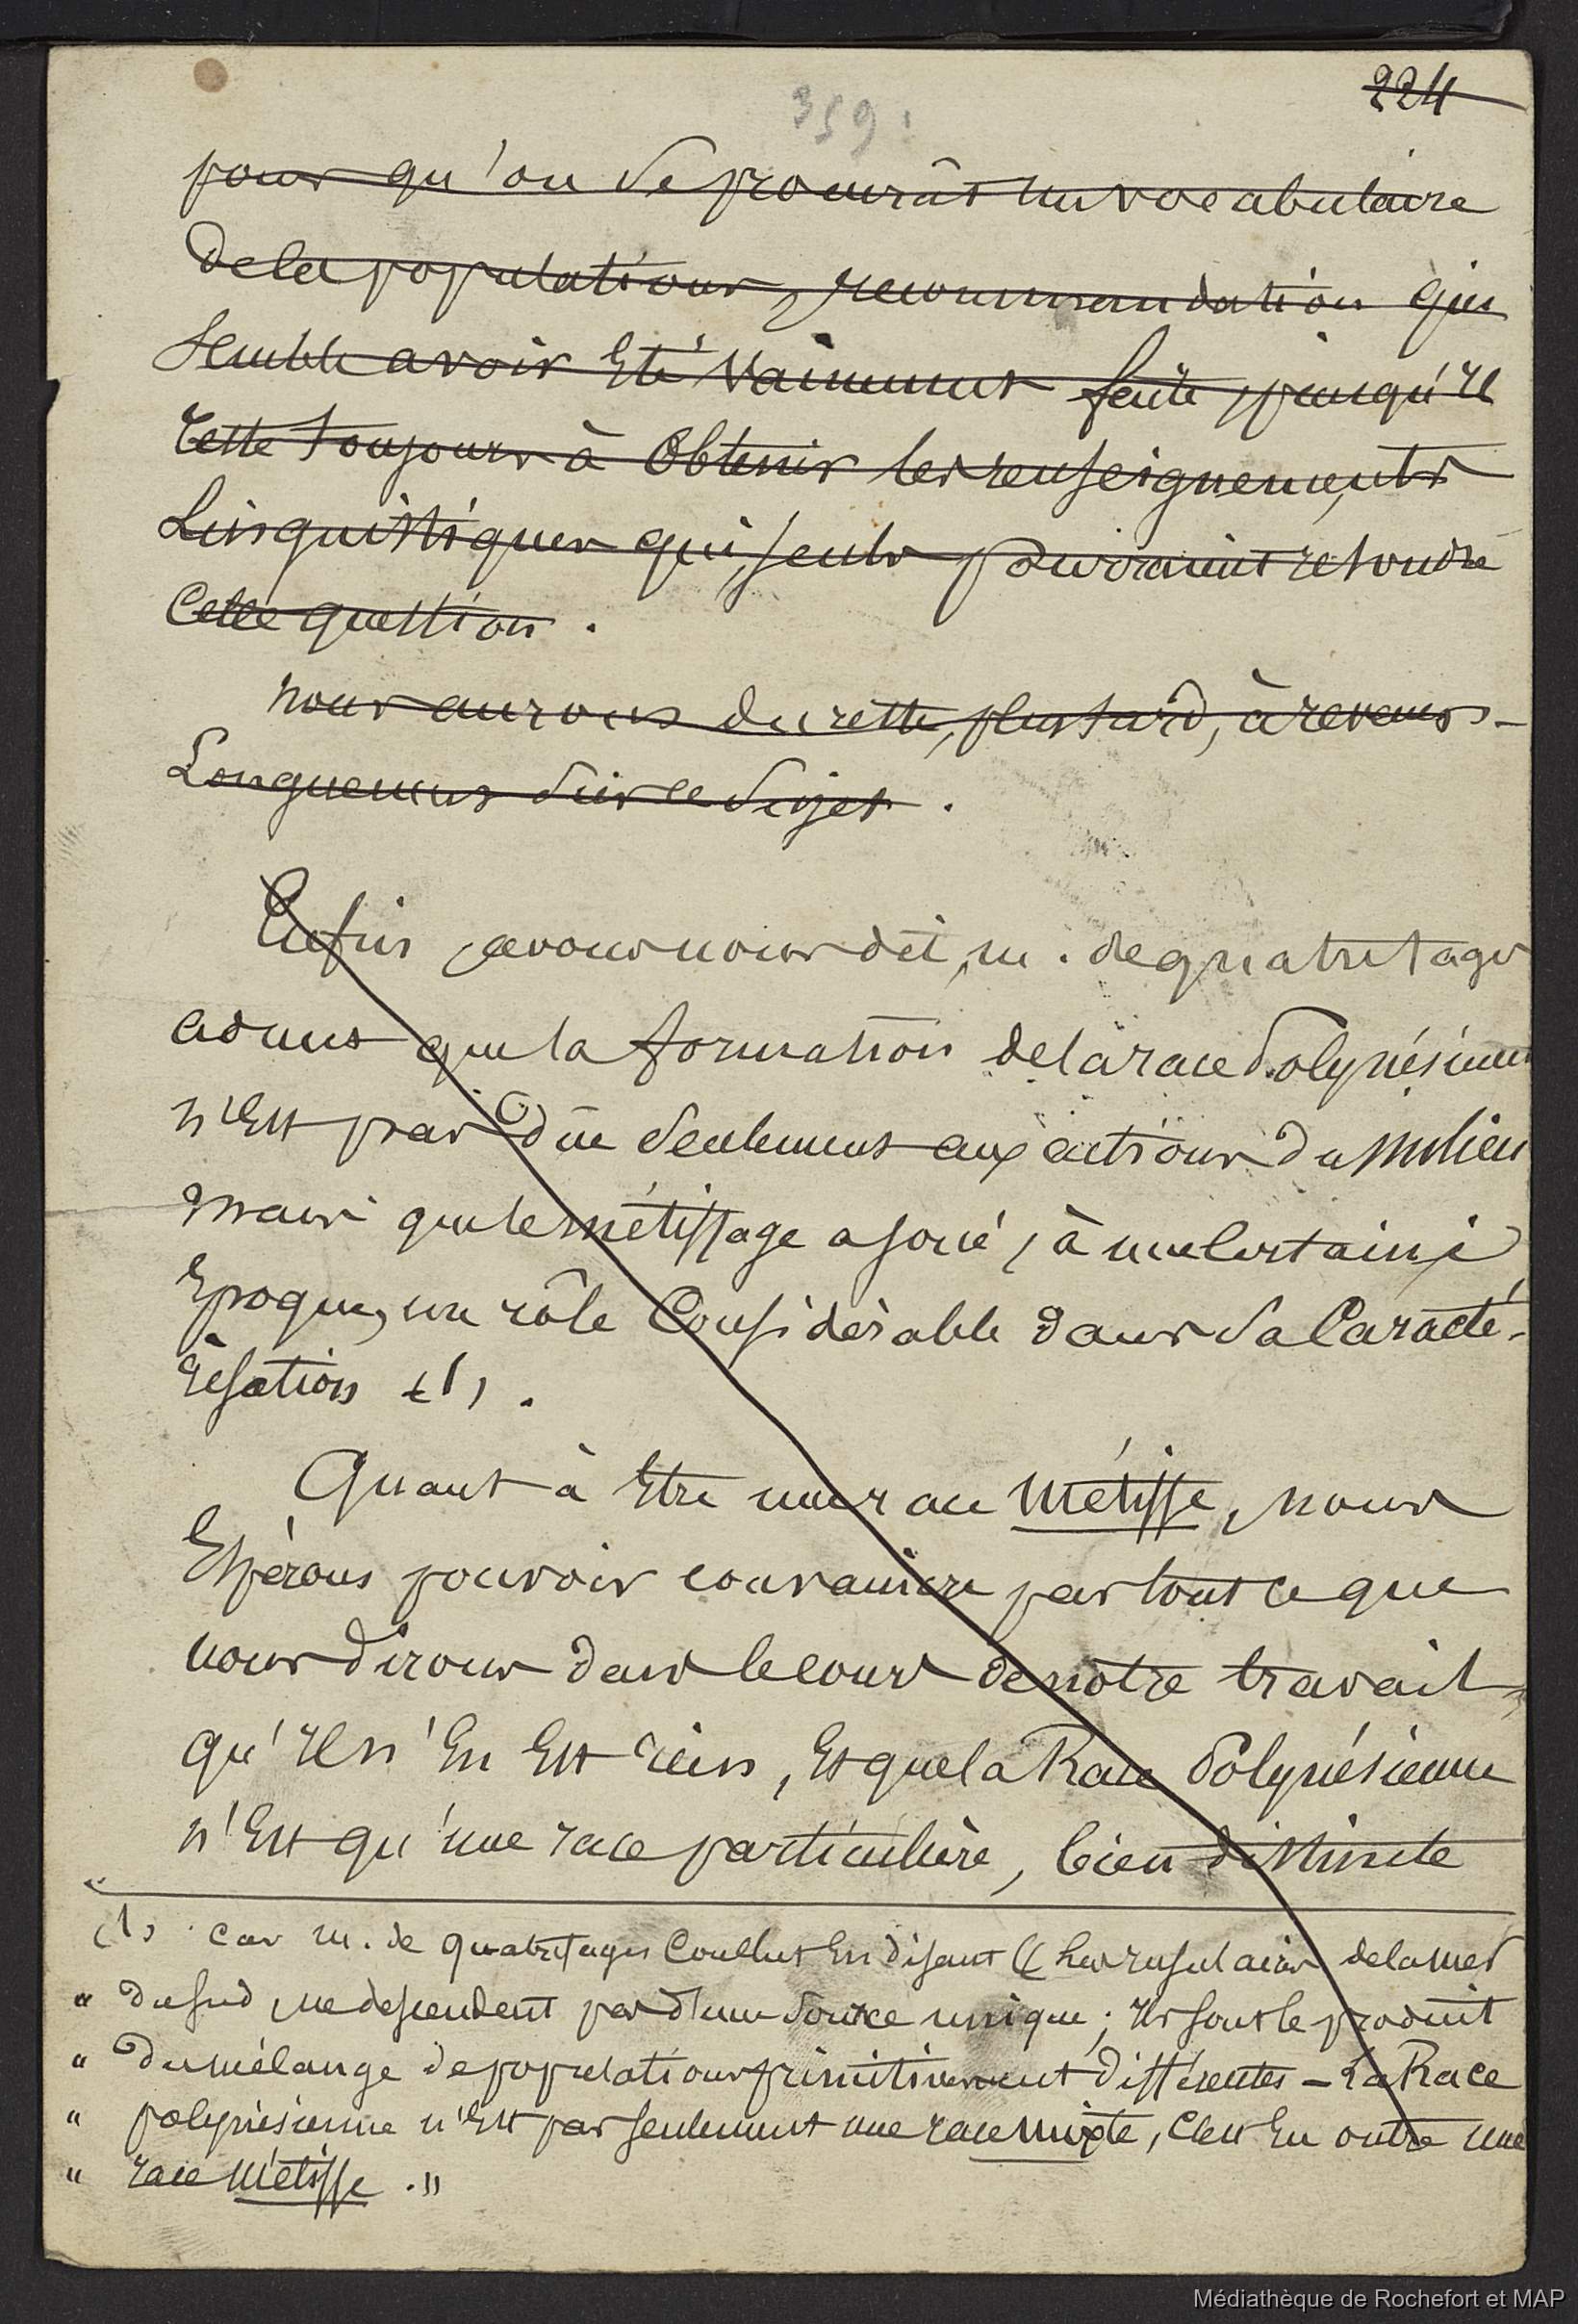 224
359.
pour qu'on se procurât un vocabulaire
de la population, recommandation qui
semble avoir été vainement faite, puisqu'il
reste toujours à obtenir les renseignements
Linguistiques qui, seuls pourraient résoudre
cette question.
nous aurons du reste, plus tard, à revenir
Longuement sur ce sujet.
Enfin, avons nous dit, m. de quatrefages
admet que la formation de la race Polynésienne
n'est pas dûe seulement aux actions du milieu
mais que le métissage a joué, à une certaine
époque, un rôle considérable dans sa Caracté-
risation (1).
Quant à être une race métisse, nous
Espérons pouvoir convaincre par tout ce que
nous dirons dans le cours de notre travail,
qu'il n'en est rien, et que la Race Polynésienne
n'est qu'une race particulière, bien distincte
(1) car m. de quatrefages conclut en disant « les insulaires de la mer
" du sud, ne descendent pas d'une source unique ; ils sont le produit
" du mélange de populations primitivement différentes – La Race
" polynésienne n'est pas seulement une race mixte, c'est en outre une
" race métisse. "
Médiathèque de Rochefort et MAP